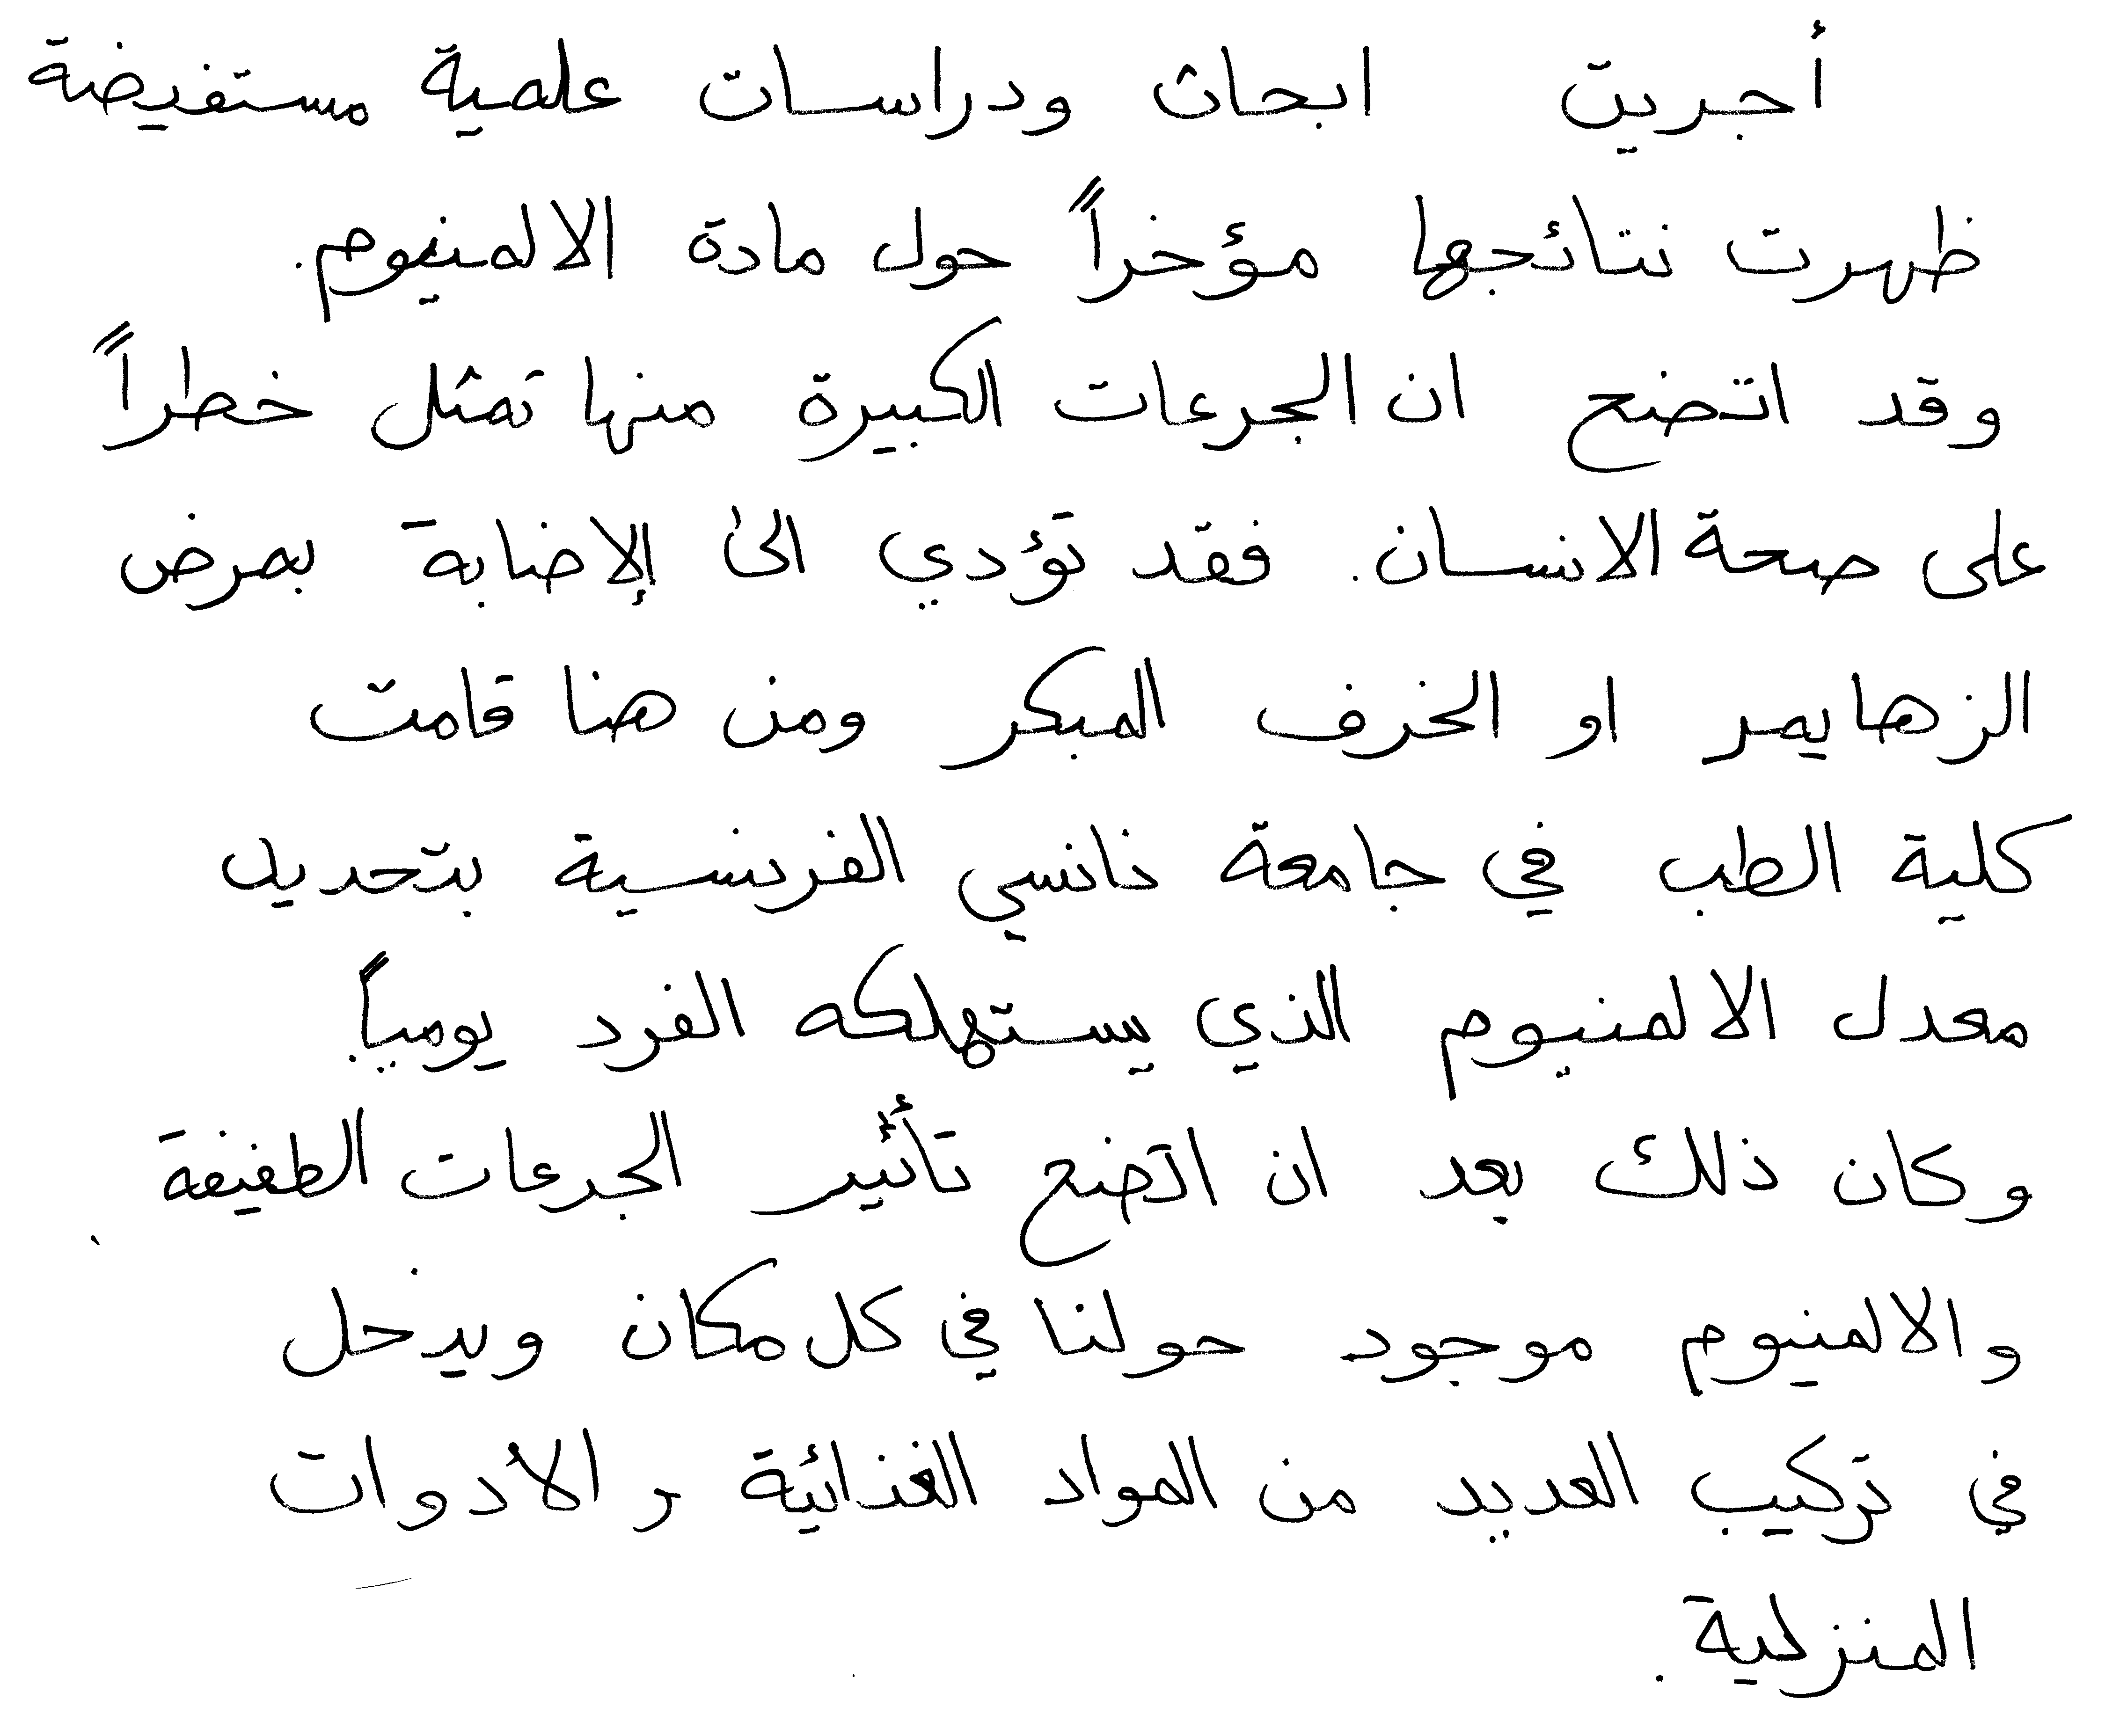 أجريت ابحاث ودراسات علمية مستفيضة
ظهرت نتائجها مؤخراً حول مادة الالمنيوم.
وقد اتضح ان الجرعات الكبيرة منها تمثل خطراً
على صحة الانسان. فقد تؤدي الى الإضابة بمرض
الزهايمر او الخرف المبكر ومن هنا قامت
كلية الطب في جامعة نانسي الفرنسية بتحديد
معدل الالمنيوم الذي يستهلكه الفرد يومياً.
وكان ذلك بعد ان اتضح تأثير الجرعات الطفيفة.
والالمنيوم موجود حولنا في كل مكان ويدخل
في تركيب العديد من المواد الغذائية و الأدوات
المنزلية.